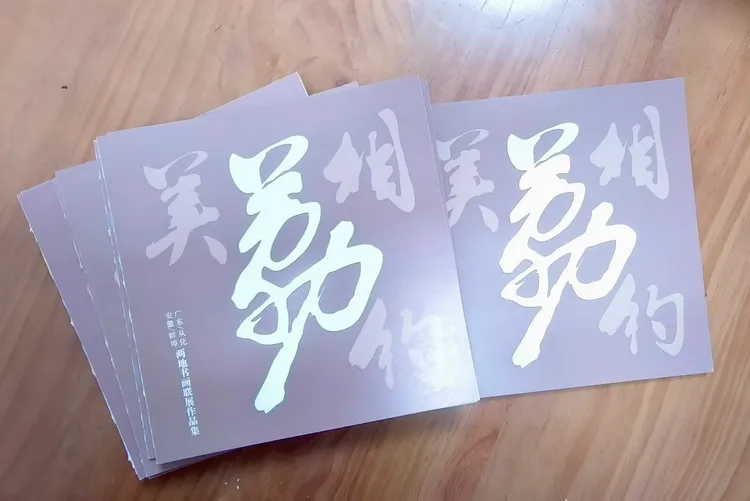 相约
荔
美
广东/从化
安徽/蚌埠
两地书画联展作品集
相约
荔
美